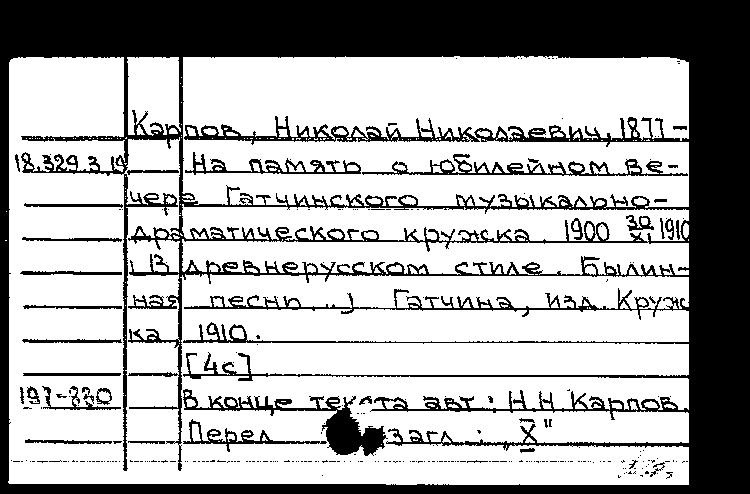 Карпов, Николай Николаевич, 1877 -
18.329.3.19 На память о юбилейном ве-
чере Гатчинского музыкально-
драматического кружка. 1900 30/XI 1910
[В древнерусском стиле. Былин-
ная песнь...] Гатчина, изд. Круж
ка, 1910.
[4с]
197-330 В конце текста авт: Н.Н. Карпов.
Перепл загл: „X"